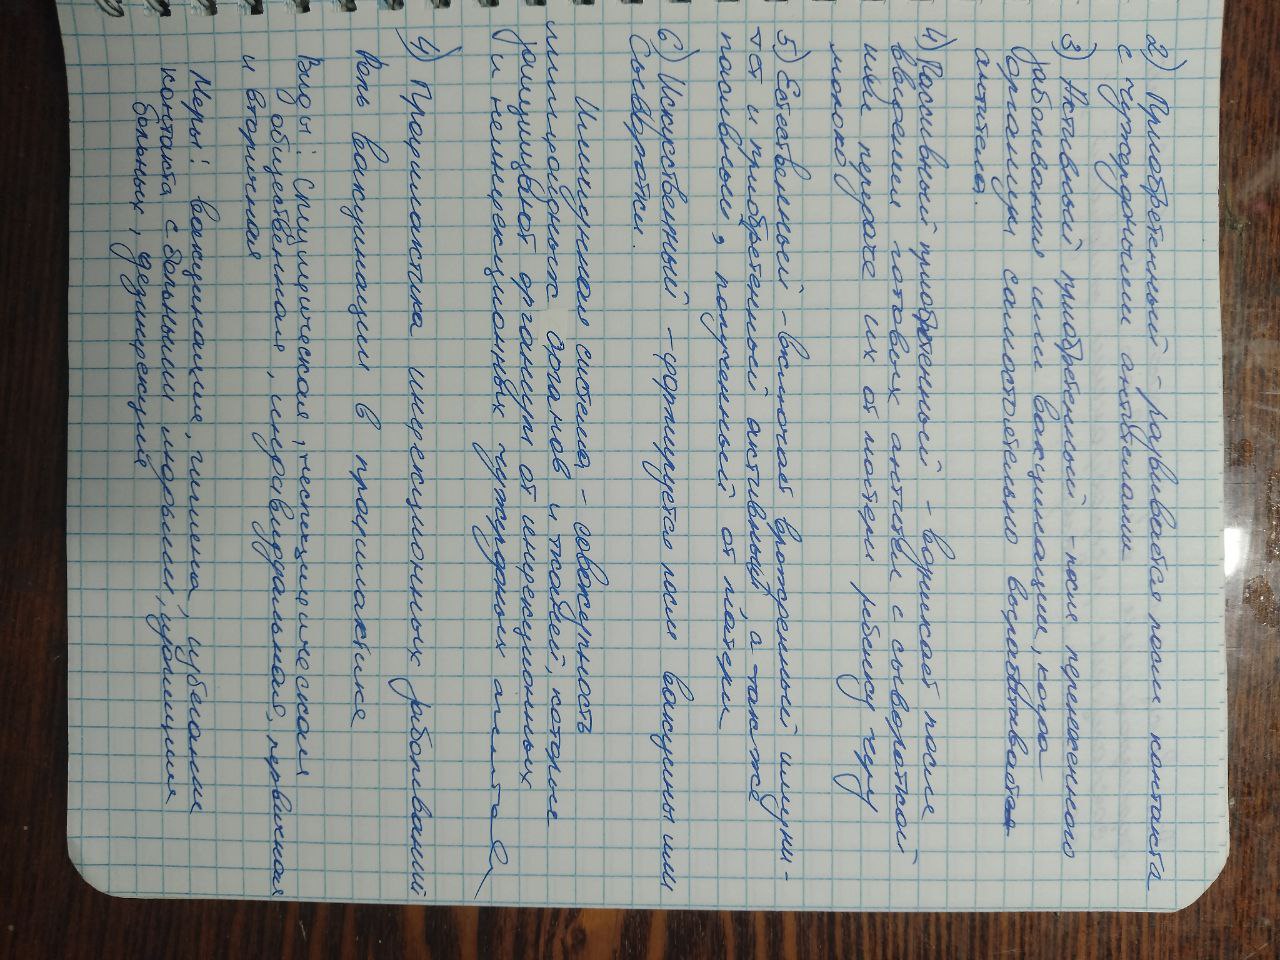 2) Приобретенный - развивается после контакта
с чужеродными антителами
3) Активный приобретенный - после перенесенного
заболевания или вакцинации, когда
организм самостоятельно вырабатывает
антитела.
4) Пассивный приобретенный - возникает после
введения готовых антител с сывороткой
или передаче их от матери ребенку через
молоко
5) Естественный - включает врожденный иммуни-
тет и приобретенный активный, а также
пассивный, полученный от матери
6) Искуственный - формируется после вакцины или
Сыворотки.
Иммунная система - совокупность
лимфоидных органов и тканей, которые
защищают организм от инфекционных
и неинфекционных чужеродных агентов
4) Профилактика инфекционных заболеваний
Роль вакцинации в профилактике
Виды: специфическая, неспецифическая
общественная, индивидуальная, первичная
и вторичная
Меры: вакцинация, гигиена, избегание
контакта с больными людьми, изоляция
больных, дезинфекция